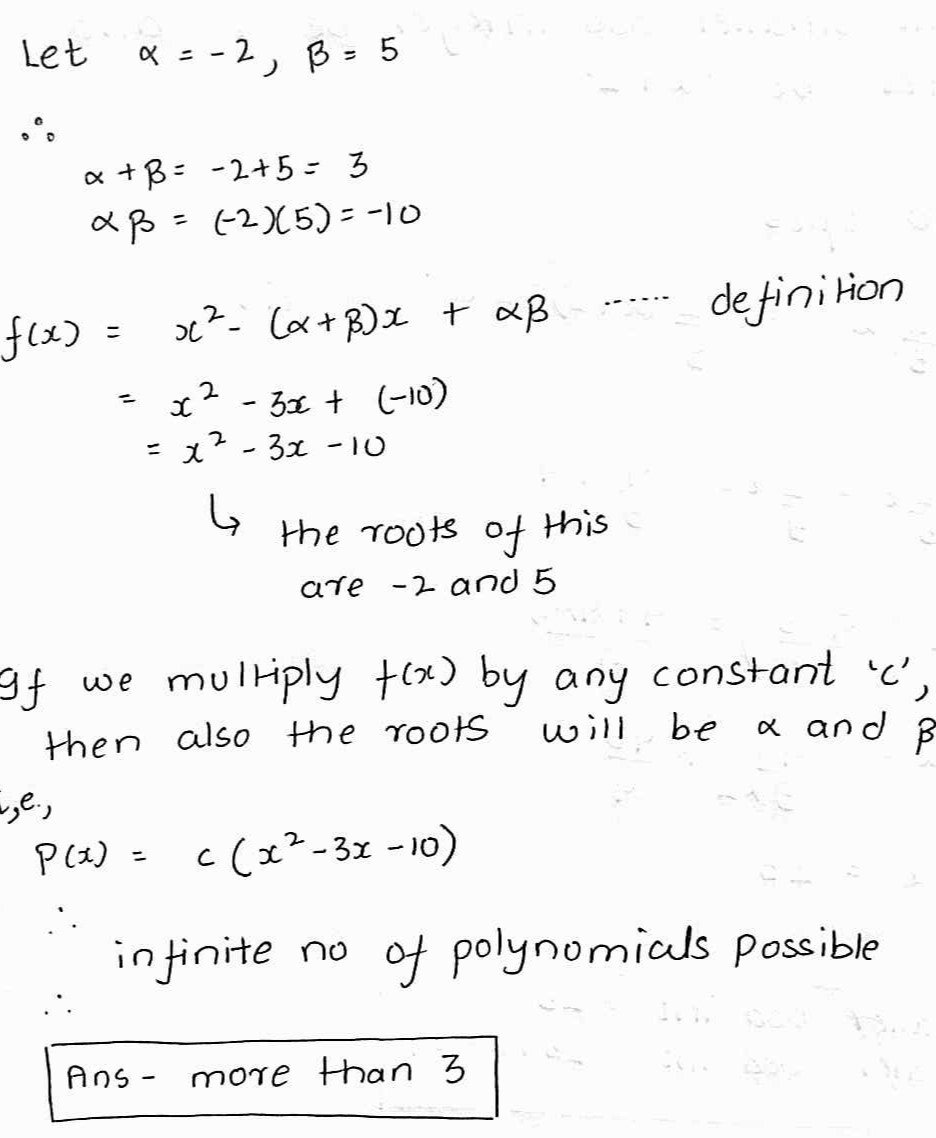 Let α = -2, β = 5
∴
α + β = -2+5 = 3
αβ = (-2)(5) = -10
f(x) = x² - (α+β)x + αβ ...... definition
= x² - 3x + (-10)
= x² - 3x - 10
↳ the roots of this
are -2 and 5
If we multiply f(x) by any constant 'c',
then also the roots will be α and β
i,e.,
P(x) = c (x² - 3x - 10)
∴
infinite no of polynomials possible
∴
Ans - more than 3